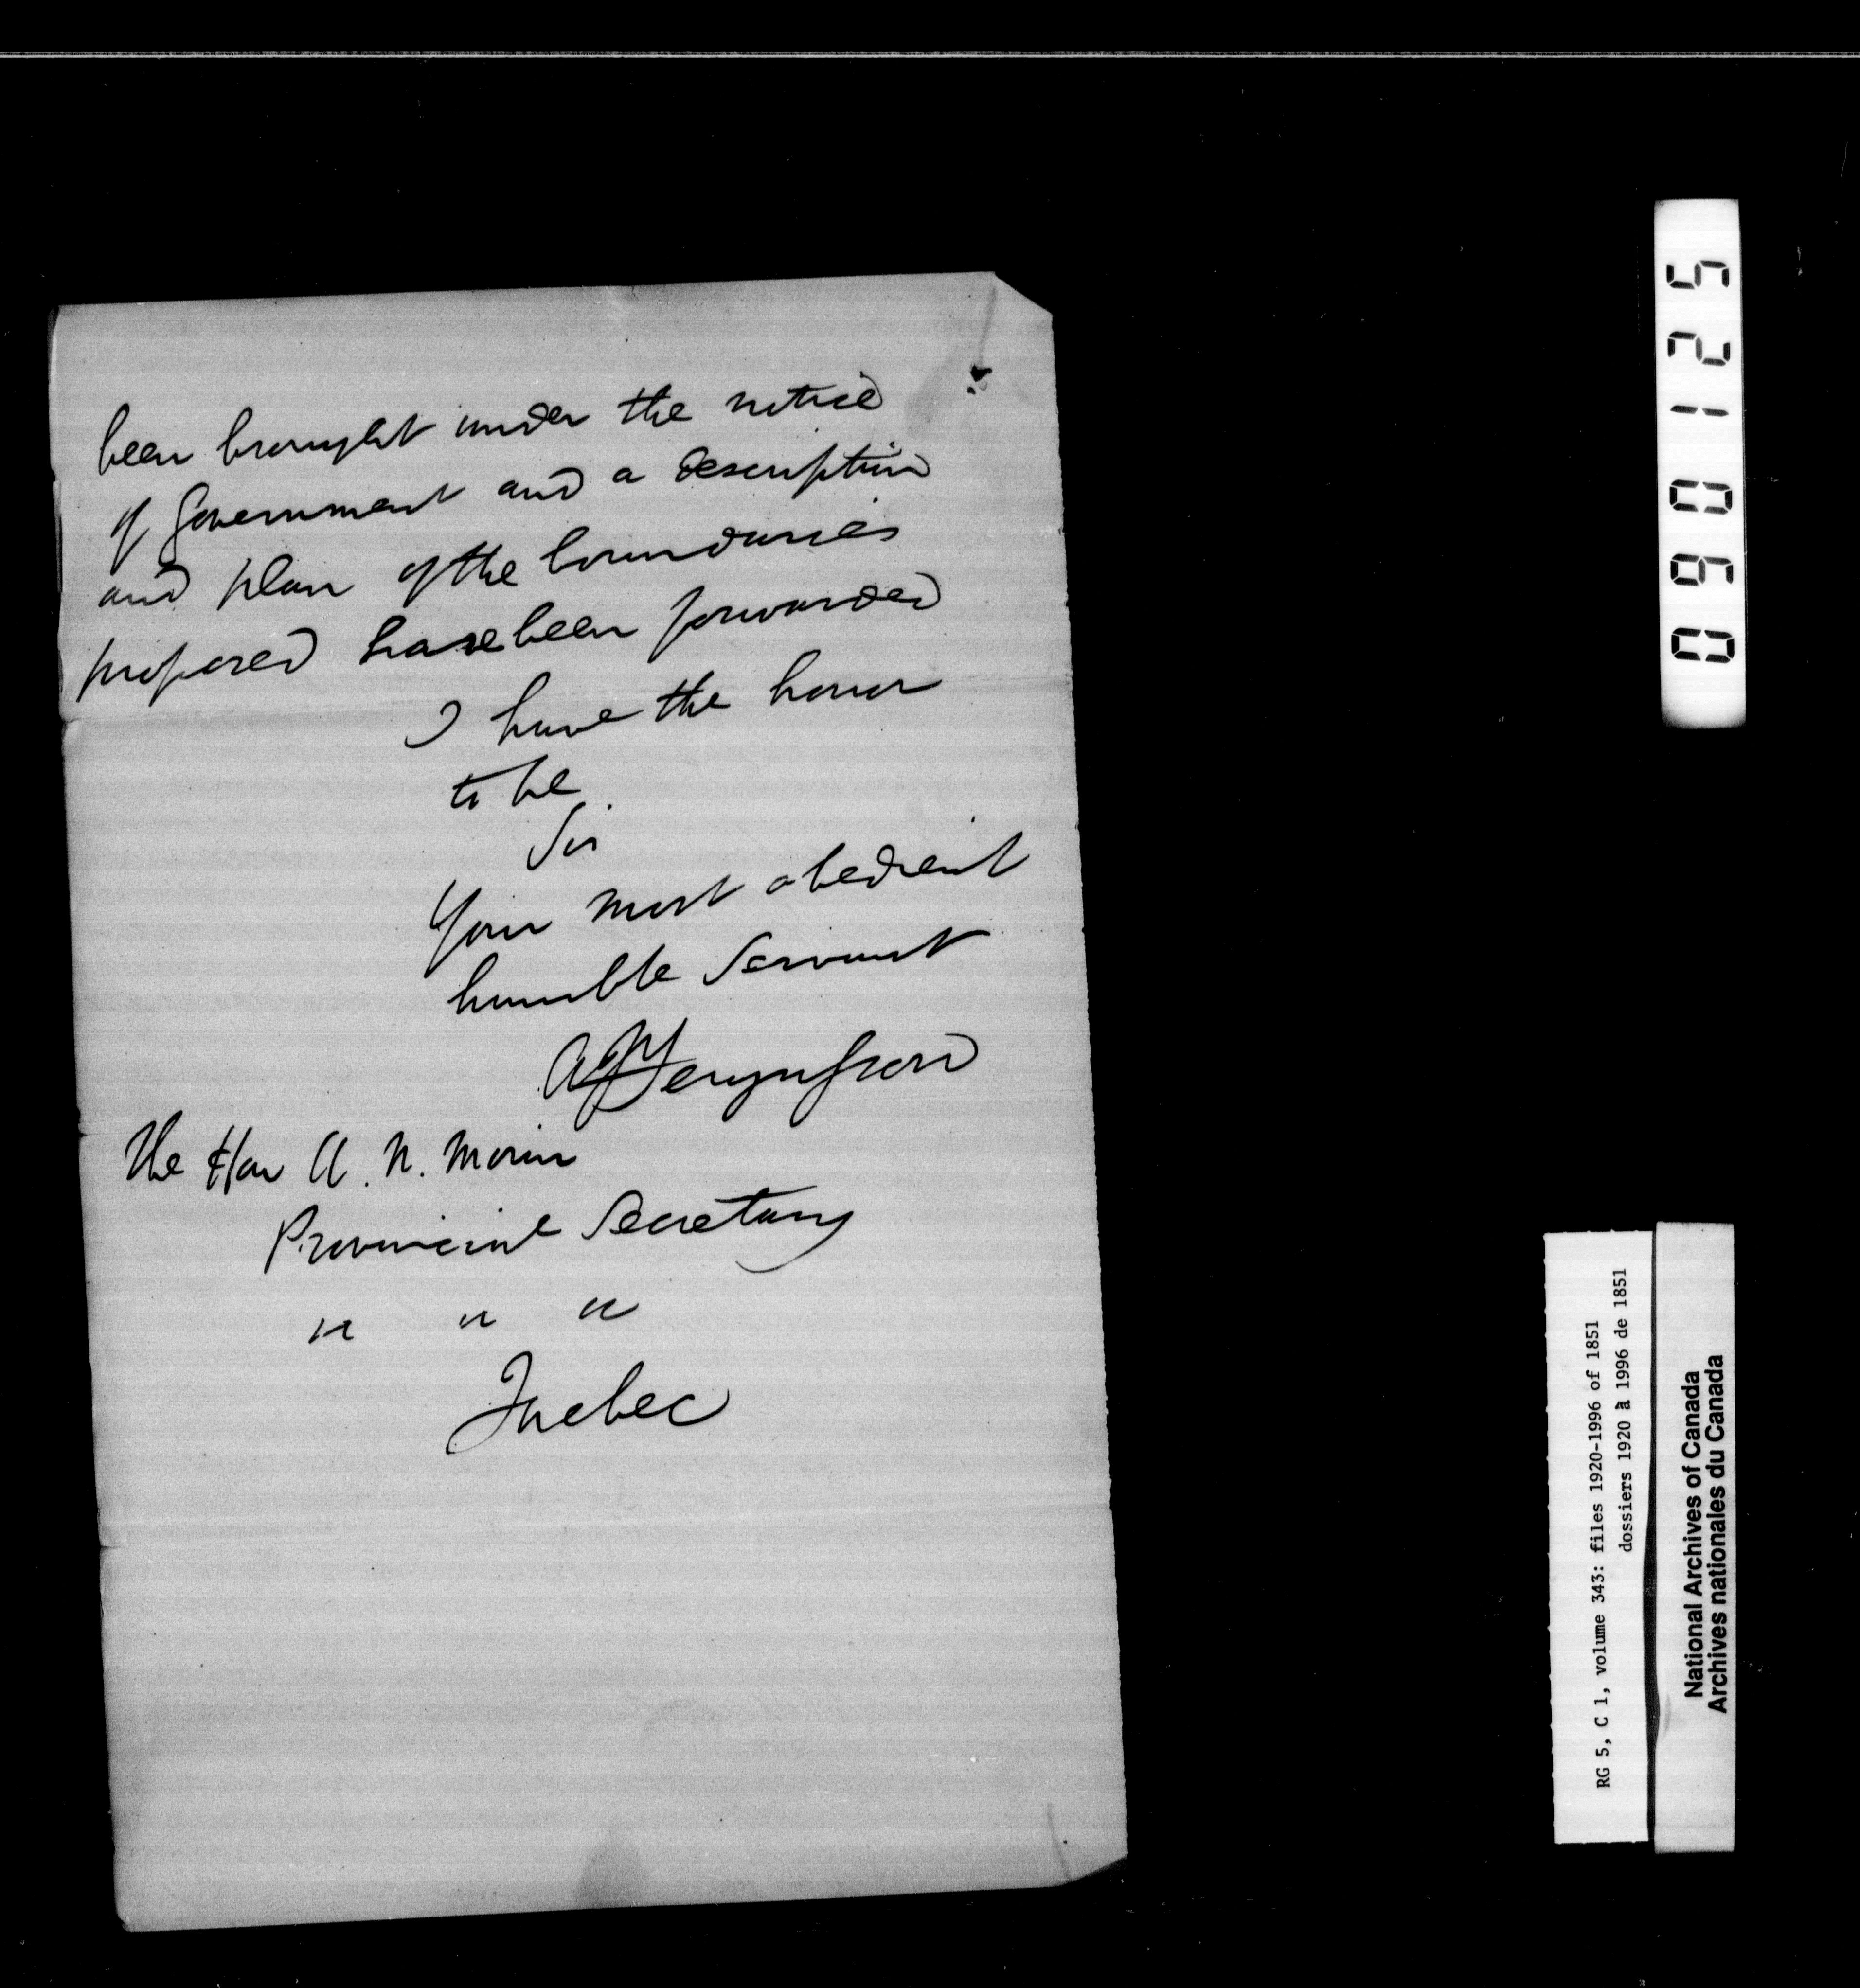 been brought under the notice
of Government and a description
and plan of the boundaries
proposed have been forwarded
I have the honor
to be
Sir
Your most obedient
humble Servant
A J Fergusson
The Hon A. N. Morin
Provincial Secretary
" " "
Quebec
090125
RG 5, C 1, volume 343: files 1920-1996 of 1851
dossiers 1920 à 1996 de 1851
National Archives of Canada
Archives nationales du Canada